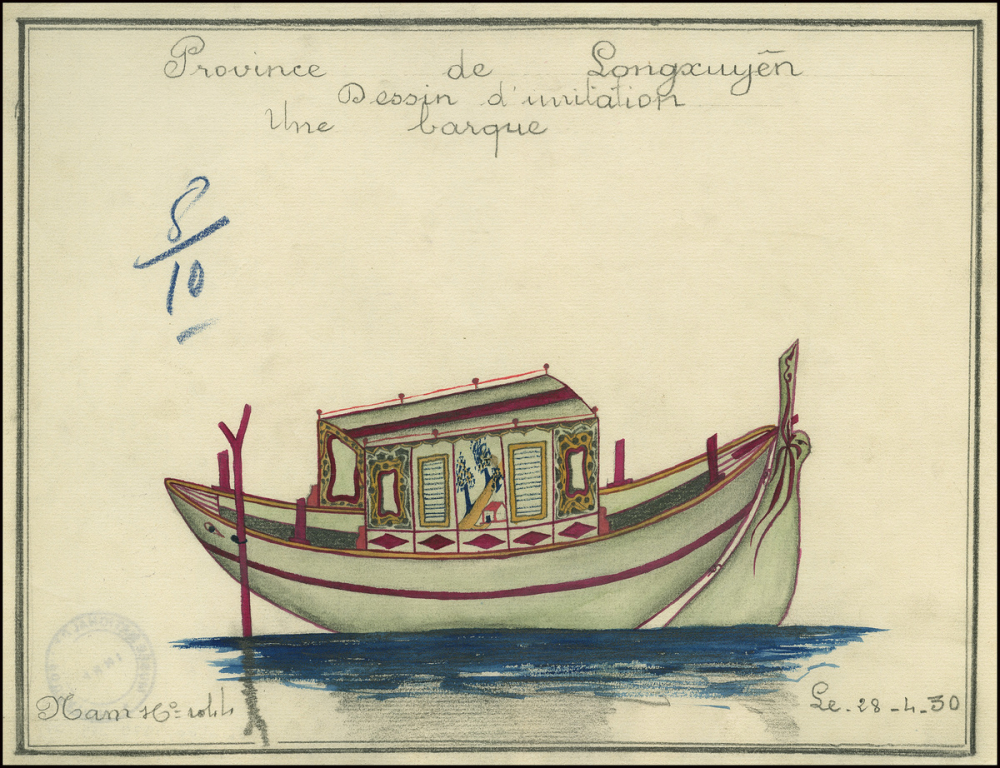 Province de Longxuyên
Dessin d'imitation
Une barque
8
10
Nam
Le. 28 - 4 - 30